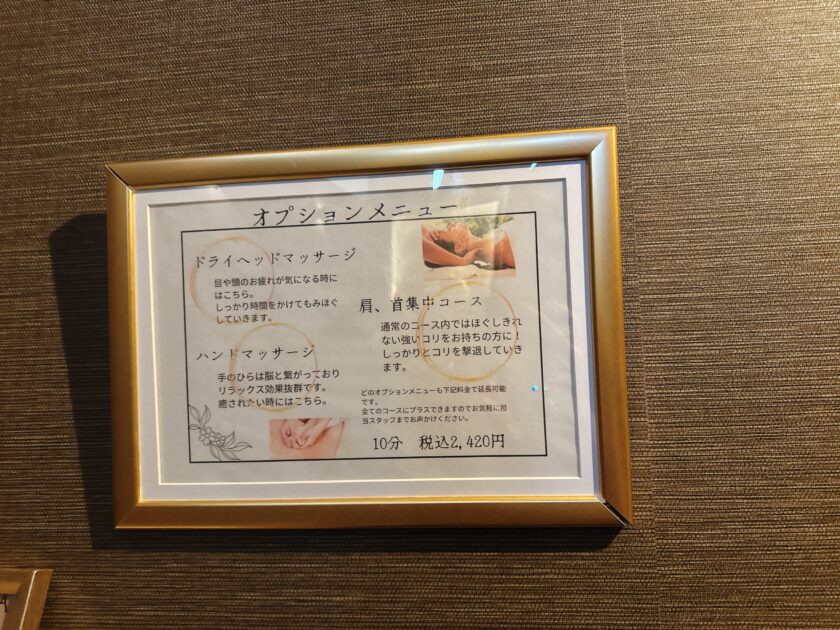 オプションメニュー
ドライヘッドマッサージ
目や頭のお疲れが気になる時に
はこちら。
しっかり時間をかけてもみほぐ
していきます。
ハンドマッサージ
手のひらは脳と繋がっており
リラックス効果抜群です。
癒されたい時にはこちら。
肩、首集中コース
通常のコース内ではほぐしきれ
ない強いコリをお持ちの方に！
しっかりとコリを撃退していき
ます。
どのオプションメニューも下記料金で延長可能
です。
全てのコースにプラスできますのでお気軽に担
当スタッフまでお声かけください。
10分 税込2,420円